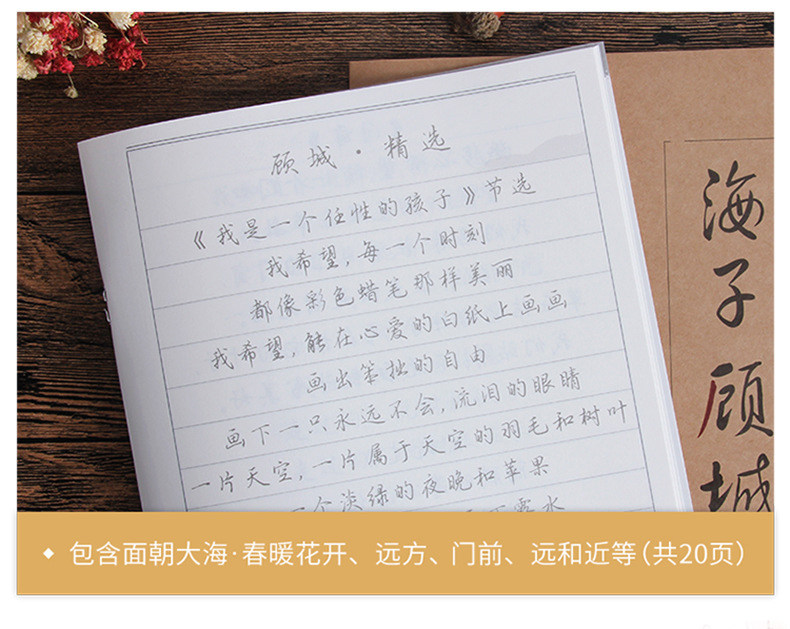 顾城·精选
《我是一个任性的孩子》节选
我希望,每一个时刻
都像彩色蜡笔那样美丽
我希望,能在心爱的白纸上画画
画出笨拙的自由
画下一只永远不会,流泪的眼睛
一片天空,一片属于天空的羽毛和树叶
个淡绿的夜晚和苹果
海子顾城
包含面朝大海·春暖花开、远方、门前、远和近等(共20页)